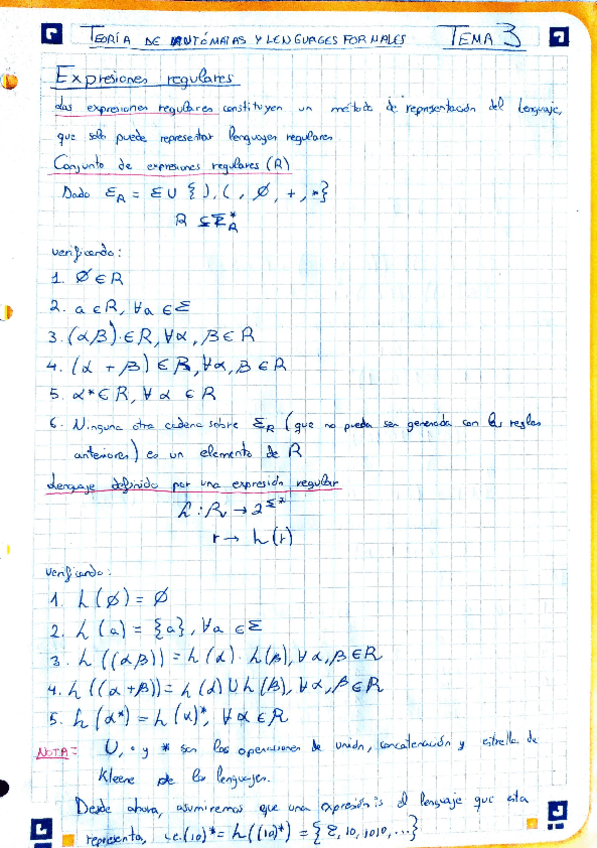 TEORÍA DE AUTÓMATAS Y LENGUAGES FORMALES TEMA 3
Expresiones regulares
Las expresiones regulares constituyen un método de representación del lenguaje,
que solo puede representar lenguajes regulares
Conjunto de expresiones regulares (R)
Dado Σ_R = Σ ∪ { ), (, Ø, +, *}
R ⊆ Σ_R^*
verificando:
1. Ø ∈ R
2. a ∈ R, ∀a ∈ Σ
3. (αβ) ∈ R, ∀α, β ∈ R
4. (α + β) ∈ R, ∀α, β ∈ R
5. α* ∈ R, ∀ α ∈ R
6. Ninguna otra cadena sobre Σ_R (que no pueda ser generada con las reglas
anteriores) es un elemento de R
Lenguaje definido por una expresión regular
L : R → 2^Σ*
r → L(r)
verificando:
1. L(Ø) = Ø
2. L(a) = {a}, ∀a ∈ Σ
3. L((αβ)) = L(α) · L(β), ∀ α, β ∈ R
4. L((α + β)) = L(α) ∪ L(β), ∀α, β ∈ R
5. L(α*) = L(α)*, ∀ α ∈ R
NOTA: ∪, · y * son las operaciones de unión, concatenación y estrella de
Kleene de los lenguajes.
Desde ahora, asumiremos que una expresión is el lenguaje que esta
representa, i.e. (10)* = L((10)*) = {ε, 10, 1010, ...}